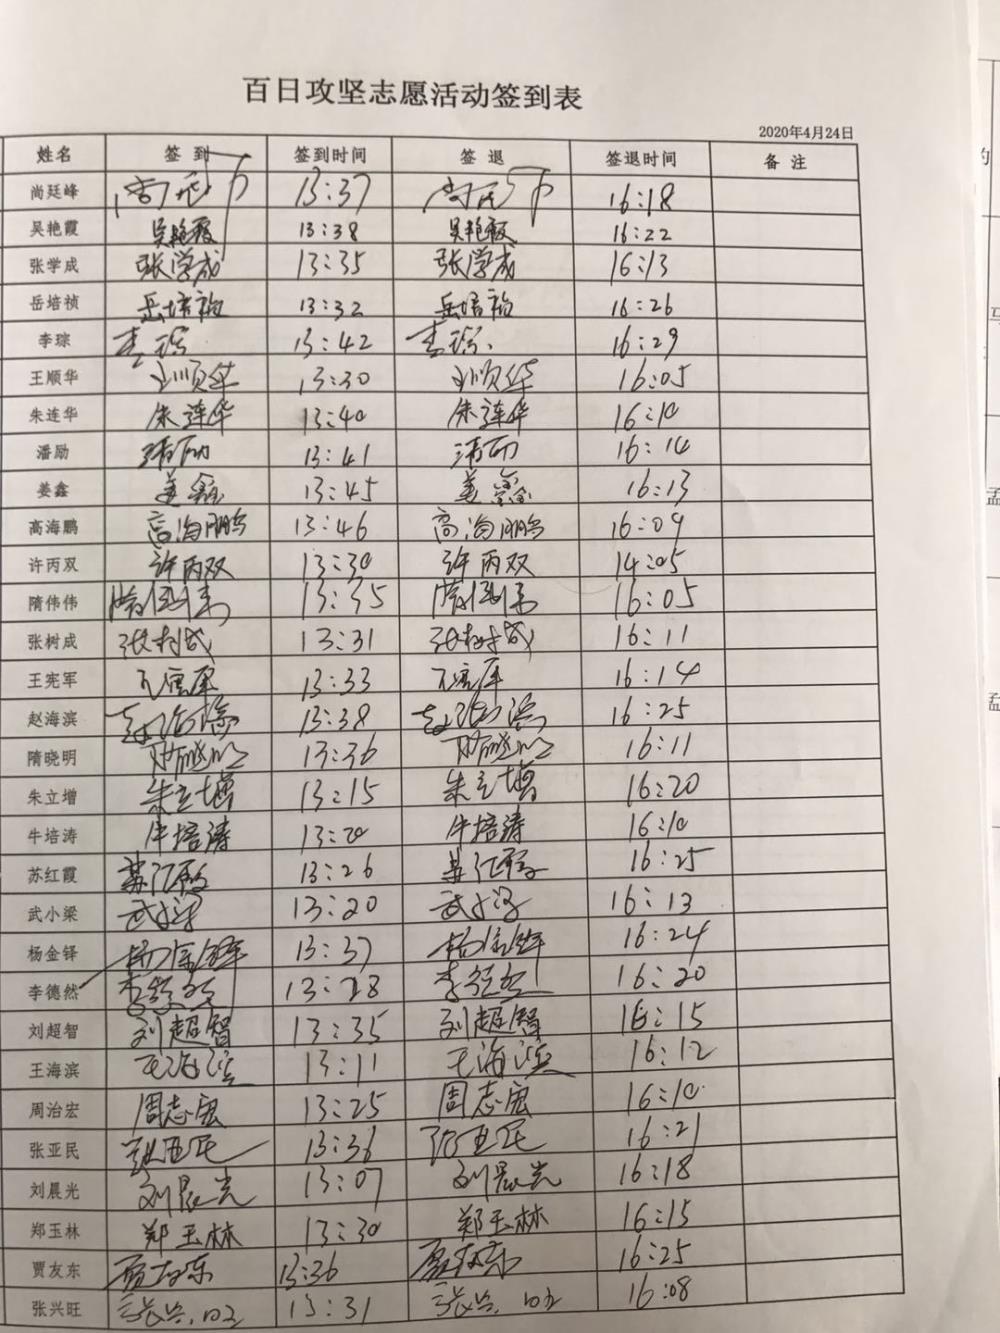 百日攻坚志愿活动签到表
2020年4月24日
姓名 签到 签到时间 签退 签退时间 备注
尚廷峰 13:37 16:18
吴艳霞 吴艳霞 13:38 吴艳霞 16:22
张学成 张学成 13:35 张学成 16:13
岳培祯 岳培祯 13:32 岳培祯 16:26
李琮 李琮 13:42 李琮 16:29
王顺华 王顺华 13:30 王顺华 16:05
朱连华 朱连华 13:40 朱连华 16:10
潘励 潘励 13:41 潘励 16:14
姜鑫 姜鑫 13:45 姜鑫 16:13
高海鹏 高海鹏 13:46 高海鹏 16:09
许丙双 许丙双 13:30 许丙双 14:05
隋伟伟 隋伟伟 13:35 隋伟伟 16:05
张树成 张树成 13:31 张树成 16:11
王宪军 王宪军 13:33 王宪军 16:14
赵海滨 赵海滨 13:38 赵海滨 16:25
隋晓明 隋晓明 13:36 隋晓明 16:11
朱立增 朱立增 13:15 朱立增 16:20
牛培涛 牛培涛 13:20 牛培涛 16:10
苏红霞 苏红霞 13:26 苏红霞 16:25
武小梁 武小梁 13:20 武小梁 16:13
杨金铎 杨金铎 13:37 杨金铎 16:24
李德然 李德然 13:18 李德然 16:20
刘超智 刘超智 13:35 刘超智 16:15
王海滨 王海滨 13:11 王海滨 16:12
周治宏 周志宏 13:25 周志宏 16:10
张亚民 张亚民 13:36 张亚民 16:21
刘晨光 刘晨光 13:07 刘晨光 16:18
郑玉林 郑玉林 13:30 郑玉林 16:15
贾友东 贾友东 13:36 贾友东 16:25
张兴旺 张兴旺 13:31 张兴旺 16:08